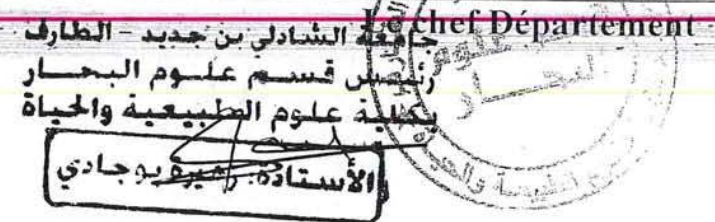 Le chef Département
جامعة الشادلي بن جديد - الطارف
رئيس قسم علوم البحار
بكلية علوم الطبيعية والحياة
الأستاذة: زهيرة بوجادي
علوم
البحار